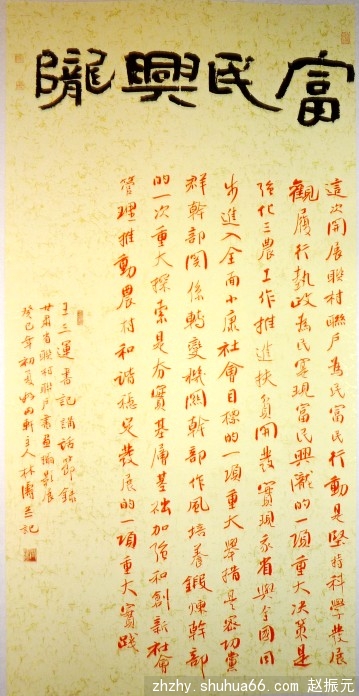 富民興隴
這次開展聯村聯戶為民富民行動是堅持科學發展
觀履行執政為民實現富民興隴的一項重大決策是
強化三農工作推進扶貧開發實現我省與全國同
步進入全面小康社會目標的一項重大舉措是密切黨
群幹部關係轉變機關幹部作風培養鍛煉幹部
的一次重大探索是夯實基層基礎加強和創新社會
管理推動農村和諧穩定發展的一項重大實踐
王三運書記講話節錄
甘肅省聯村聯戶書畫攝影展
癸巳年初夏 軒主人林濤 記
zhzhy.shuhua66.com 赵振元